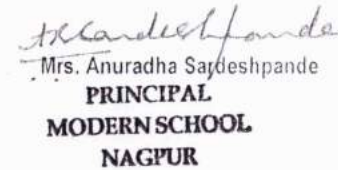 Mrs. Anuradha Sardeshpande
PRINCIPAL
MODERN SCHOOL
NAGPUR